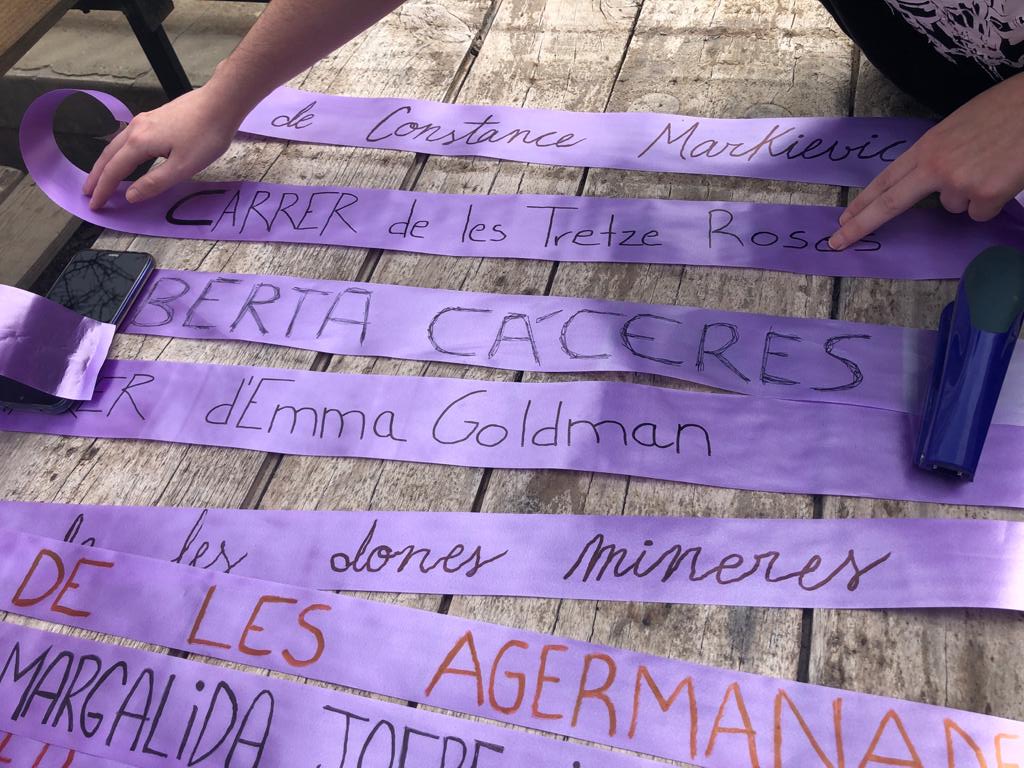 de Constance Markievic
CARRER de les Tretze Roses
BERTA CÁCERES
d'Emma Goldman
de les dones mineres
DE LES AGERMANADES
MARGALIDA JOFRE